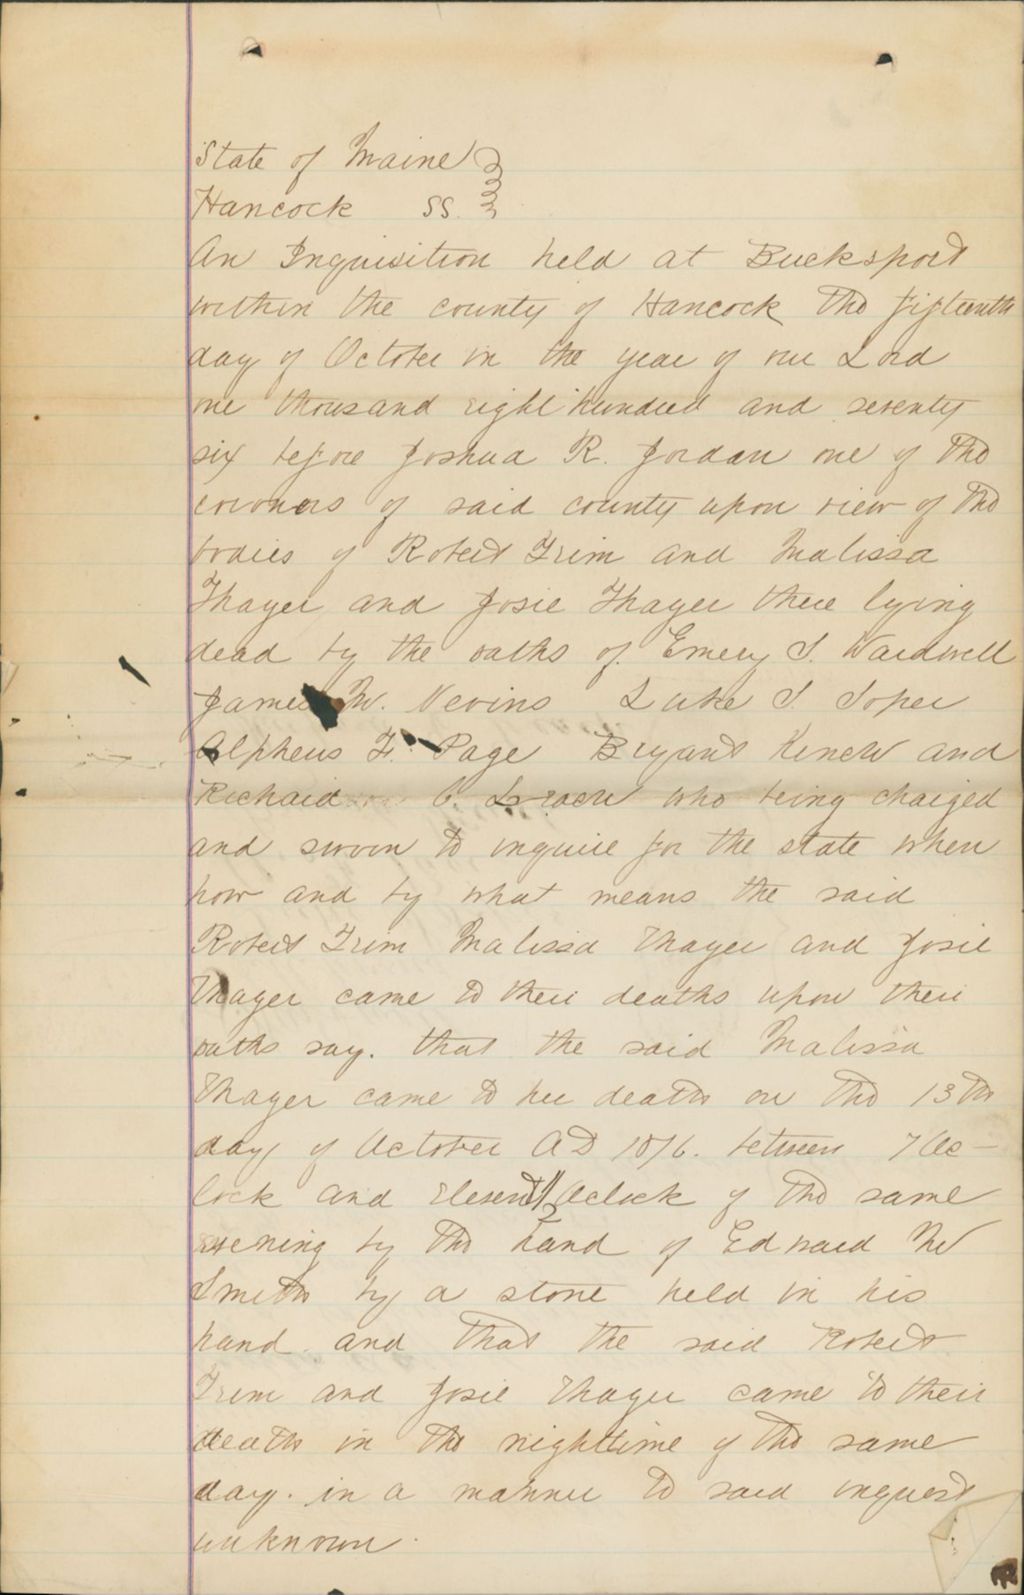 State of Maine
Hancock SS.
An Inquisition held at Bucksport
within the county of Hancock the fifteenth
day of October in the year of our Lord
one thousand eight hundred and seventy
six before Joshua R. Jordan one of the
coroners of said county upon view of the
bodies of Robert Trim and Malissa
Thayer and Josie Thayer there lying
dead by the oaths of Emery S. Wardwell
James W. Nevins Luke S. Soper
Alpheus F. Page Bryant and
Richard C. who being charged
and sworn to inquire for the state when
how and by what means the said
Robert Trim Malissa Thayer and Josie
Thayer came to their deaths upon their
oaths say. that the said Malissa
Thayer came to her death on the 13th
day of October AD 1876. between 7 Oc-
lock and Eleven Oclock of the same
evening by the hand of Edward M
Smith by a stone held in his
hand. and that the said Robert
Trim and Josie Thayer came to their
deaths in the nighttime of the same
day. in a manner to said inquest
unknown.